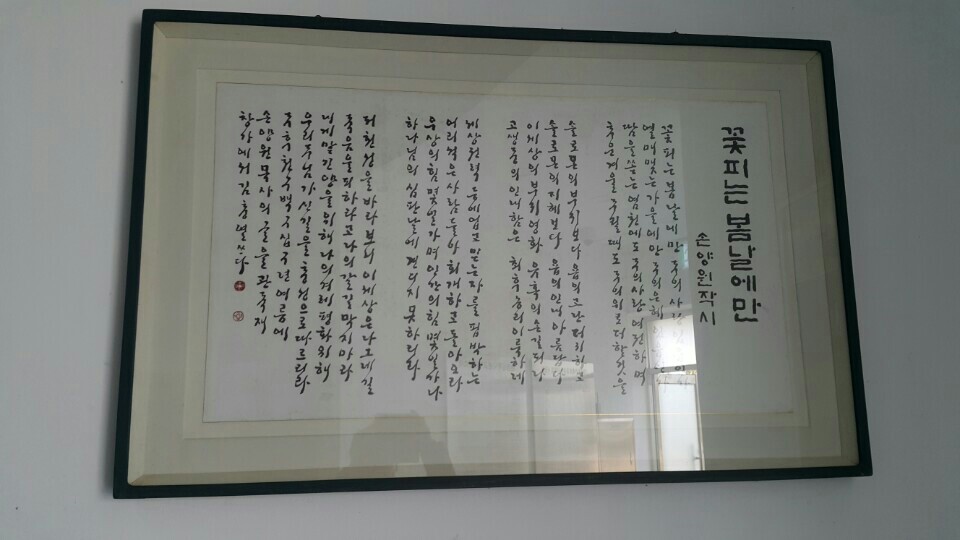 꽃피는 봄날에만
손양원 작시
꽃피는 봄날에만 주의 사랑
열매 맺는 가을에만 주의 은혜
땀을 쏟는 염천에도 주의 사랑 여전하며
추운 겨울 주릴 때도 주의 위로 더할 것을
솔로몬의 부귀보다 욥의 고난 더 귀하고
솔로몬의 지혜보다 욥의 인내 아름답다
이 세상의 부귀영화 유혹의 손길 되나
고생 중의 인내함은 최후 승리 이룩하네
세상 권력 등에 업고 믿는자를 핍박하는
어리석은 사람들아 회개하고 돌아오라
우상의 힘 몇 일 가며 인간의 힘 몇 날 가나
하나님의 심판날에 견디지 못하리라
저 천성을 바라보니 이 세상은 나그네 길
죽음을 피하라고 나의 갈 길 막지마라
내게 맡긴 양을 위해 나의 겨레 평화 위해
우리 주님 가신 길을 충성으로 따르리라
주후 천구백구십구년 여름에
손양원 목사의 글을
김충렬 쓰다